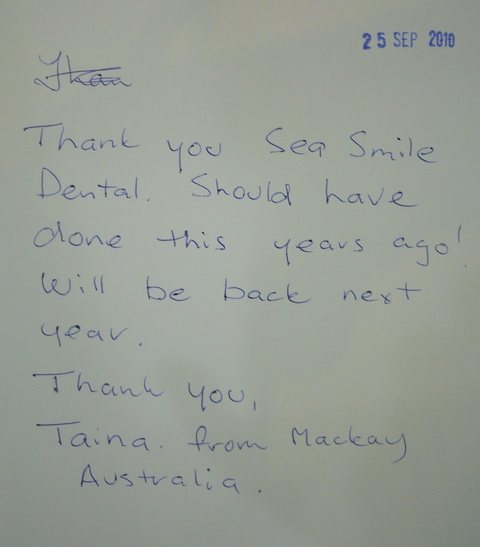 25 SEP 2010
Thank you Sea Smile
Dental. Should have
done this years ago!
Will be back next
year.
Thank you,
Taina. from Mackay
Australia.